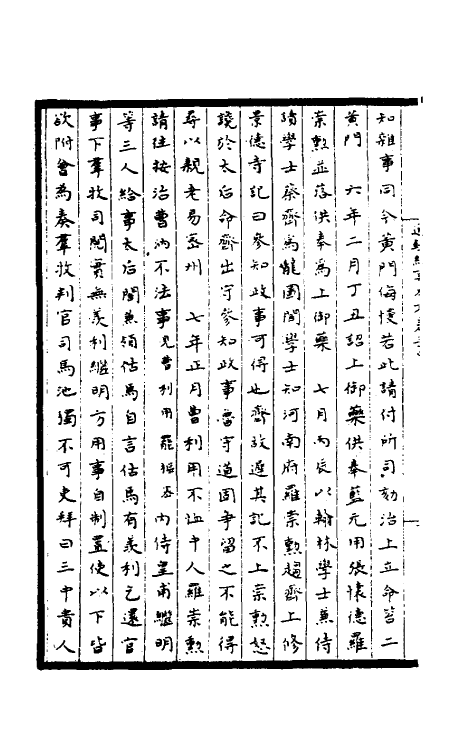 知雜事同今黃門侮慢若此請付所司劾治上立命笞二
黃門　六年二月丁丑詔上御藥供奉藍元用張懷德羅
崇勲並落供奉爲上御藥　七月丙辰以翰林學士兼侍
讀學士蔡齊爲龍圖閣學士知河南府羅崇勲趨齊上修
景德寺記曰參知政事可得也齊故遲其記不上崇勲怒
譖於太后命齊出守參知政事魯守道固爭留之不能得
尋以親老易密州　七年正月曹利用不恤中人羅崇勲
請往按治曹汭不法事見曹利用罷樞密內侍皇甫繼明
等三人給事太后閣兼領估馬自言估馬有羨利乞遷官
事下羣牧司閱實無羨利繼明方用事自制置使以下皆
欲附會爲奏羣牧判官司馬池獨不可吏拜曰三中貴人